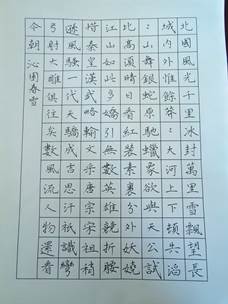 北國風光千里冰封萬里雪飄望長
城內外惟餘莽:大河上下頓失滔
:山舞銀蛇原馳蠟象欲與天公試
比高須晴日看紅裝素裹分外妖嬈
江山如此多嬌引無數英雄競折腰
惜秦皇漢武略輸文采唐宗宋祖稍
遜風騷一代天驕成吉思汗祗識彎
弓射大雕俱往矣數風流人物還看
今朝 沁園春雪